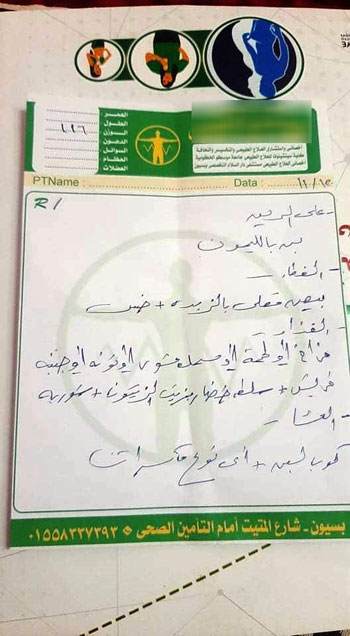 العمر
الطول
الوزن ١١٦
الدهون
السوائل
العظام
العضلات
أخصائى واستشارى العلاج الطبيعى والتخسيس والنحافة
PTName : Data : ١٠/١٥
R/
- على الريق
بن بالليمون
- الفطار
بيض مقلى بالزبده + خس
- الغذاء
فراخ أو لحمة أو سمك مشوى أو تونه أو جبنه
قريش + سلطه خضار بزيت الزيتون + شوربه
- العشا
كوب لبن + أى نوع مكسرات
بسيون - شارع المتيت أمام التأمين الصحى ٠١٥٥٨٣٣٧٣٩٣